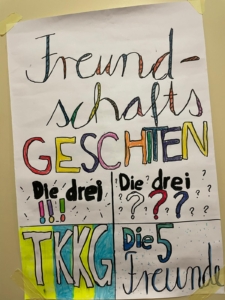 Freund-
schafts
GESCHITEN
Die drei
!!!
Die drei
???
TKKG
Die 5
Freunde